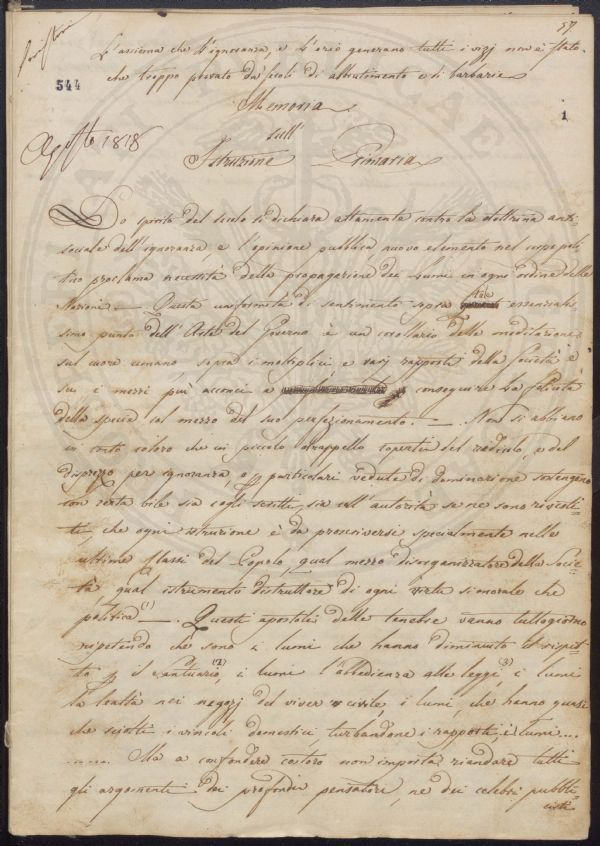 57
L'assioma che l'ignoranza, e l'ozio generano tutti i vizj non è stato
che troppo provato da' secoli di abbrutimento e di barbarie
544
1
Memoria
Agosto 1818
sull'
Istruzione Primaria
Lo spirito del secolo si dichiara altamente contro la dottrina anti-
sociale dell'ignoranza, e l'opinione pubblica, nuovo elemento nel corpo poli-
tico proclama necessità della propagazione dei lumi in ogni ordine delle
Nazioni — Questa uniformità di sentimento sopra tale essenziale
simo punto dell'Arte del Governo è un corollario delle meditazioni
sul cuore umano sopra i moltiplici e varj rapporti della Società e
su i mezzi più acconci a conseguire la felicità
della specie col mezzo del suo perfezionamento. — Non si abbiano
in conto coloro che in piccolo drappello coperti del ridicolo, e del
disprezzo per ignoranza o particolari vedute di dominazione sostengono
con certa bile sia cogli scritti, sia coll'autorità se ne sono rivesti-
ti, che ogni istruzione è da proscriversi specialmente nelle
ultime classi del Popolo, qual mezzo disorganizzatore della Socie-
tà, qual istrumento distruttore di ogni virtù sì morale che
politica (1) —. Questi apostoli delle tenebre vanno tuttogiorno
ripetendo che sono i lumi che hanno diminuito il rispet-
to il Santuario, (2) i lumi l'obbedienza alle leggi (3) i lumi
la lealtà nei negozj del viver civile, i lumi, che hanno quasi
che sciolti i vincoli domestici, turbandone i rapporti, i lumi....
...... Ma a confondere costoro non importa riandare tutti
gli argomenti dei profondi pensatori, ne dei celebri pubbli-
cisti